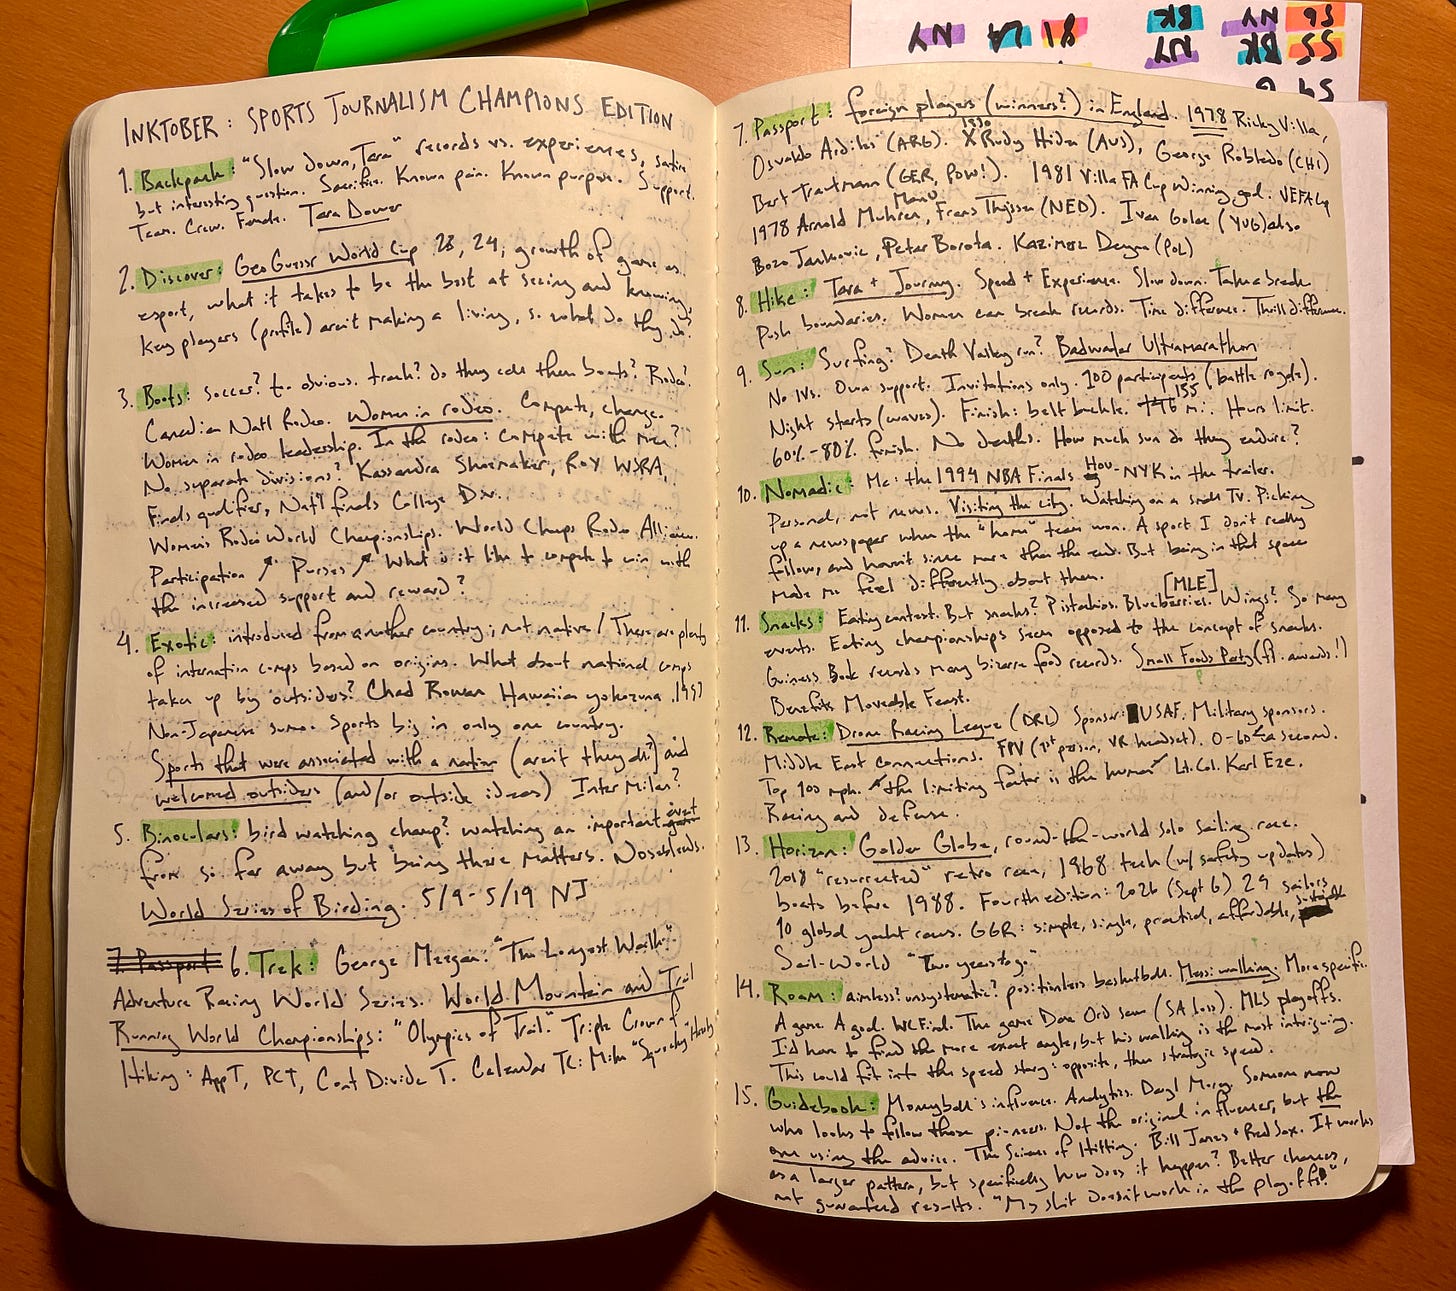 INKTOBER: SPORTS JOURNALISM CHAMPIONS EDITION
1. Backpack: "Slow down, Tara" records vs. experiences, satire
but interesting question. Sacrifice. Known pain. Known purpose. Support.
Team. Crew. Female. Tara Dower
2. Discover: GeoGuessr World Cup 23, 24, growth of game as
esport, what it takes to be the best at seeing and knowing,
key players (profile) aren't making a living, so what do they do?
3. Boots: soccer? too obvious. track? do they call them boots? Rodeo?
Canadian Nat'l Rodeo. Women in rodeo. Compete, change.
Women in rodeo leadership. In the rodeo: compete with men?
No separate divisions? Kassandra Shoemaker, ROY WSRA,
Finals qualifier, Nat'l finals College Div.
Women's Rodeo World Championships. World Champs Rodeo Alliance.
Participation ↗ Purses ↗ What is it like to compete to win with
the increased support and reward?
4. Exotic: introduced from another country; not native / There are plenty
of internation comps based on origins. What about national comps
taken up by outsiders? Chad Rowan Hawaiia yokozuna 1993
Non-Japanese sumo. Sports big in only one country.
Sports that were associated with a nation (aren't they all?) and
welcomed outsiders (and/or outside ideas) Inter Milan?
5. Binoculars: bird watching champ? watching an important event
from so far away but being there matters. Nosebleeds.
World Series of Birding. 5/9-5/19 NJ
7. Passport 6. Trek: George Meegan: "The Longest Walk".
Adventure Racing World Series. World Mountain and Trail
Running World Championships: "Olympics of Trail". Triple Crown of
Hiking: AppT, PCT, Cont Divide T. Calendar TC: Mike "Squeaky"
7. Passport: foreign players (winners?) in England. 1978 Ricky Villa,
Osvaldo Ardiles (ARG). 1930 Rudy Hiden (AUS), George Robledo (CHI)
Bert Trautmann (GER, POW!). 1981 Villa FA Cup Winning goal. UEFA Cup
1978 Arnold Muhren, ManU Frans Thijssen (NED). Ivan Golac (YUG) also
Bozo Jankovic, Petar Borota. Kazimierz Deyna (POL)
8. Hike: Tara + Journey. Speed + Experience. Slow down. Take a break
Push boundaries. Women can break records. Time difference. Thrill difference.
9. Sun: Surfing? Death Valley run? Badwater Ultramarathon
No IVs. Own support. Invitations only. 100 participants (battle royale).
Night starts (waves). Finish: belt buckle. 146 135 mi. Hours limit.
60%-80% finish. No deaths. How much sun do they endure?
10. Nomadic: Me: the 1994 NBA Finals Hou-NYK in the trailer.
Personal, not news. Visiting the city. Watching on a small TV. Picking
up a newspaper when the "home" team won. A sport I don't really
follow, and haven't since more than the end. But being in that space
made me feel differently about them.
11. Snacks: Eating contest. But snacks? Pistachios. Blueberries. [MLE] Wings? So many
events. Eating championships seem opposed to the concept of snacks.
Guiness Book records many bizarre food records. Small Foods Party (ft. awards!)
Benefits Moveable Feast.
12. Remote: Drone Racing League (DRL) Sponsor: USAF. Military sponsors.
Middle East connections. FPV (1st person, VR headset). 0-60 < a second.
Top 100 mph. "the limiting factor is the human" Lt. Col. Karl Eze.
Racing and defense.
13. Horizon: Golden Globe, round-the-world solo sailing race.
2018 "resurrected" retro race, 1968 tech (w/ safety updates)
boats before 1988. Fourth edition: 2026 (Sept 6) 29 sailors
10 global yacht races. GGR: simple, single, practical, affordable,
Sail-World "Two years to go"
14. Roam: aimless? unsystematic? positionless basketball. Messi walking. More specific.
A game. A goal. WC Final. The game Dave Ord saw (SA loss). MLS playoffs.
I'd have to find the more exact angle, but his walking is the most intriguing.
This could fit into the speed story: opposite, then strategic speed.
15. Guidebook: Moneyball's influence. Analytics. Daryl Morey. Someone now
who looks to follow those pioneers. Not the original influencer, but the
one using the advice. The Science of Hitting. Bill James + Red Sox. It works
as a larger pattern, but specifically how does it happen? Better chances,
not guaranteed results. "My shit doesn't work in the playoffs."
56 NY BK
55 BK NY 91 LA NY
54